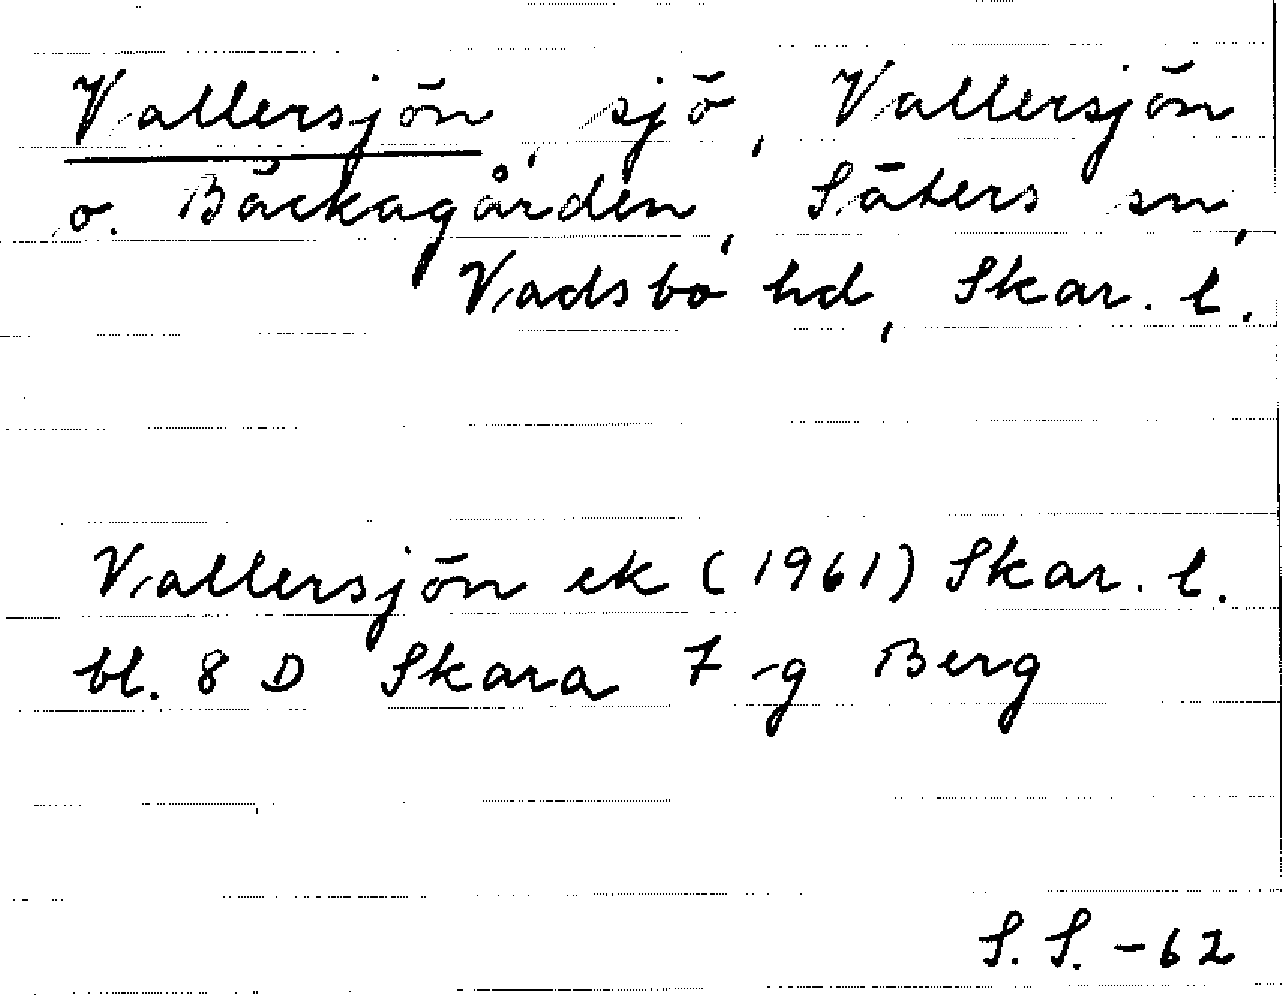 Vallersjön, sjö, Vallersjön
o. Bäckagården, Säters sn,
Vadsbo hd, Skar. l.
Vallersjön ek (1961) Skar. l.
bl. 8 D Skara 7-g Berg
S. S. -62